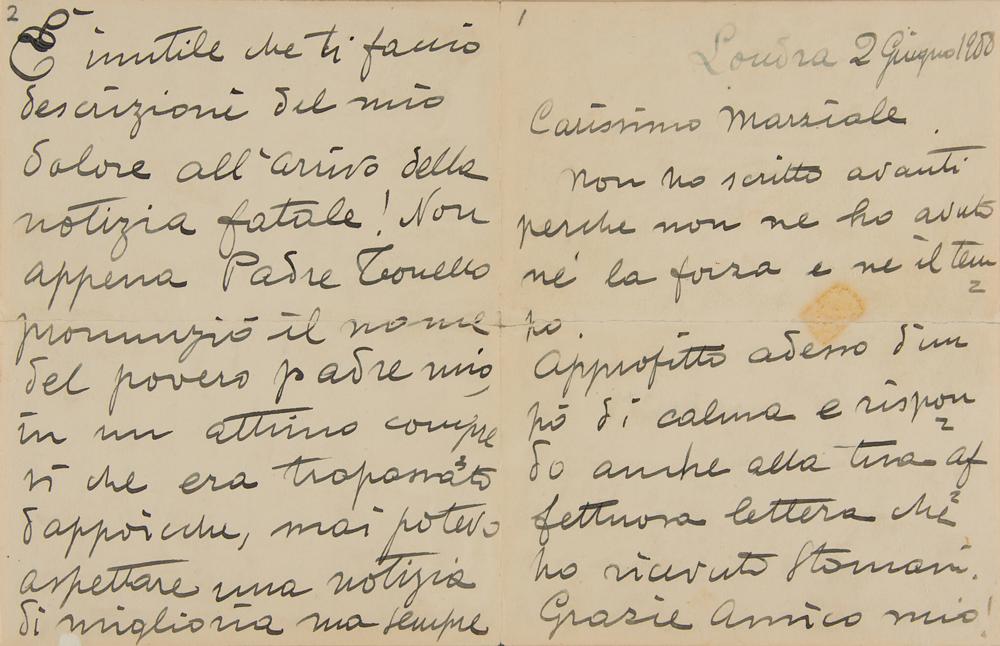 1
Londra 2 Giugno 1900
Carissimo Marziale.
Non ho scritto avanti
perche non ne ho avuto
nè la forza e nè il tem=
po.
Approfitto adesso d'un
pò di calma e rispon=
do anche alla tua af=
fettuosa lettera che
ho ricevuto stamani.
Grazie Amico mio!
2
E' inutile che ti faccio
descrizioni del mio
dolore all'arrivo della
notizia fatale! Non
appena Padre Tonello
pronunziò il nome
del povero padre mio,
in un attimo compre
si che era trapassato
dappoicche, mai potevo
aspettare una notizia
di miglioria ma sempre